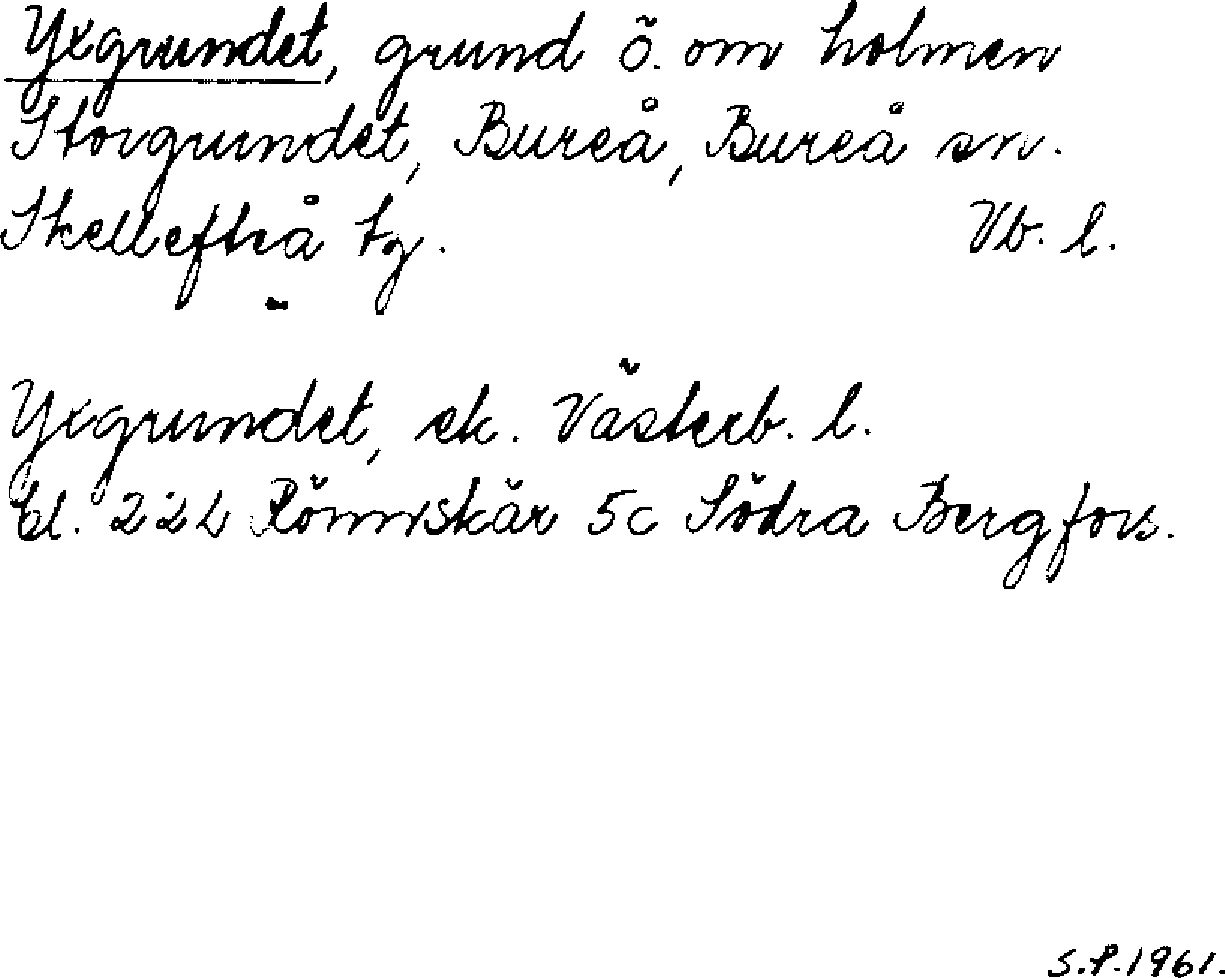 Yxgrundet, grund ö. om holmen
Storgrundet, Bureå, Bureå sn.
Skellefteå tg. Vb. l.
Yxgrundet, ek. Västerb. l.
bl. 22L Rönnskär 5c Södra Bergfors.
S.P.1961.